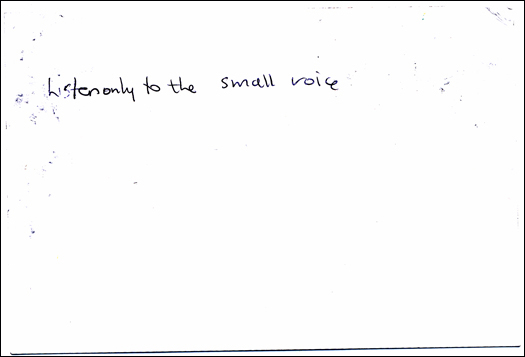 Listen only to the small voice